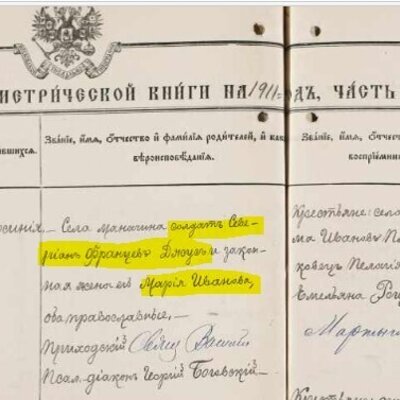 МЕТРИ́ЧЕСКОЙ КНИ́ГИ НА 1911 ГОДЪ, ЧА́СТЬ
вшихся.
Зва́нїе, и́мя, о́тчество и фами́лїя роди́телей, и како́го
вѣроисповѣ́данїя.
Зва́нїе, и́мя, о́тчес
воспрїе́мник
Села Маначина солдатъ Севе-
ріанъ Францевъ Дзюгъ и закон-
ная жена его Марія Иванова,
оба православные.
Приходскій Свящ Василій
Псал. діаконъ Георгій Боговскій
Крестьяне: села
ма Иванова
ковецъ Пелагія
Емельяна
Мартын
Крестьян